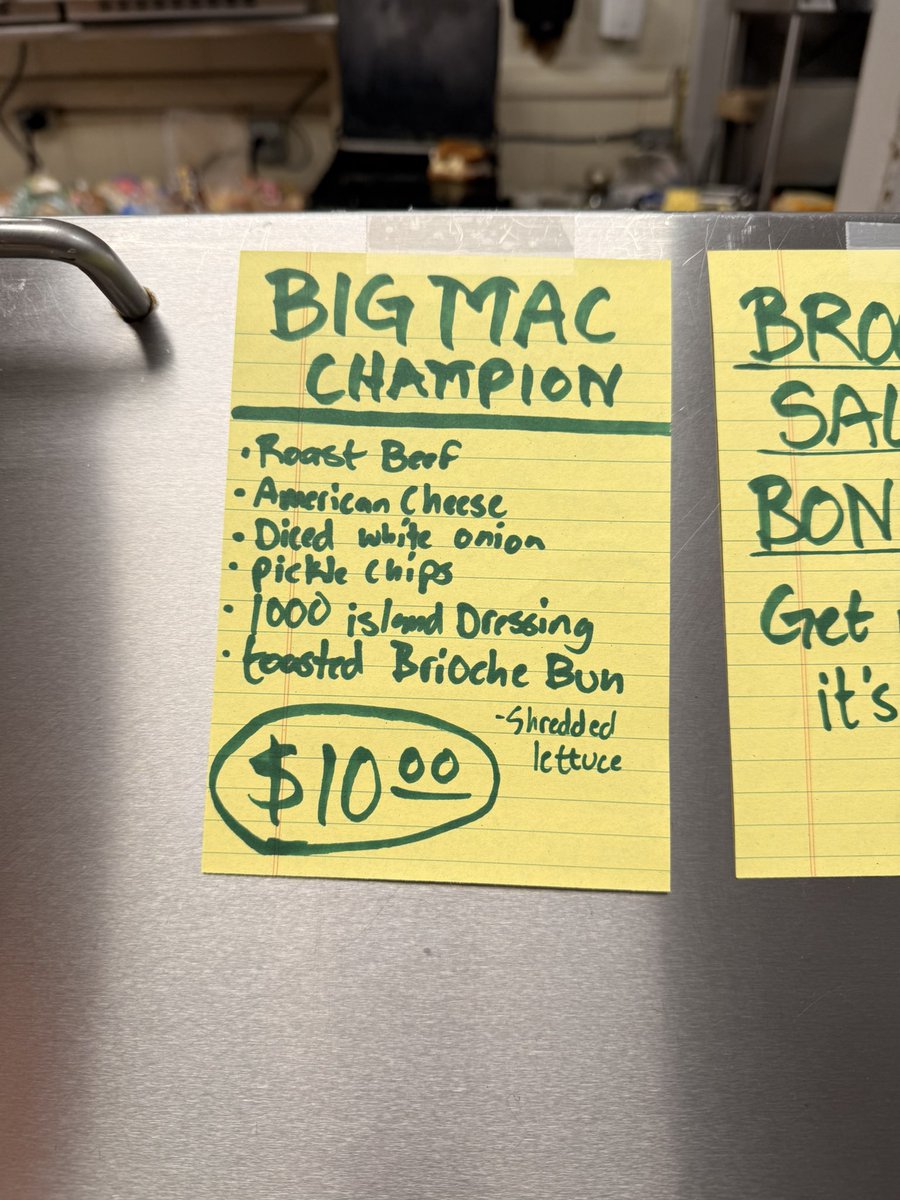 BIG MAC
CHAMPION
• Roast Beef
• American Cheese
• Diced white onion
• pickle chips
• 1000 island Dressing
• toasted Brioche Bun
- Shredded
lettuce
$10.00
BRO
SAL
BON
Get
it's